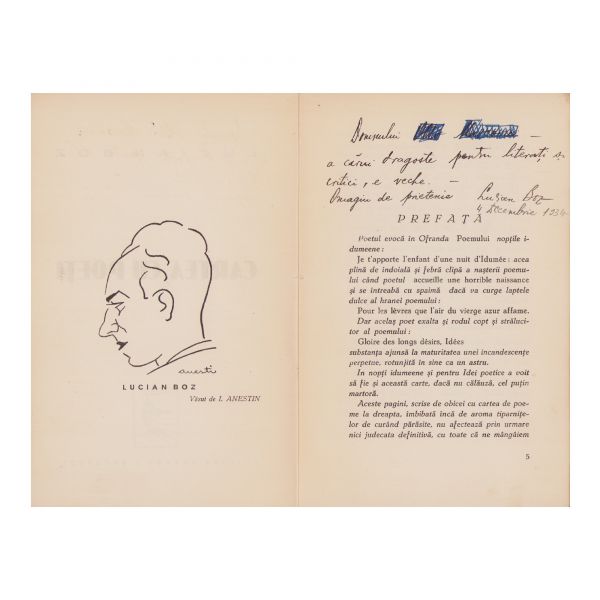 anesti
LUCIAN BOZ
Văzut de I. ANESTIN
Domnului
a cărui dragoste pentru literați și
critici, e veche. —
Omagiu de prietenie Lucian Boz
4 Decembrie 1934
PREFAȚĂ
Poetul evocă in Ofranda Poemului nopțile i-
dumeene :
Je t'apporte l'enfant d'une nuit d'Idumée : acea
plină de indoială și febră clipă a nașterii poemu-
lui când poetul accueille une horrible naissance
și se intreabă cu spaimă dacă va curge laptele
dulce al hranei poemului :
Pour les lèvres que l'air du vierge azur affame.
Dar acelaș poet exalta și rodul copt și străluci-
tor al poemului :
Gloire des longs désirs, Idées
substanța ajunsă la maturitatea unei incandescențe
perpetue, rotunjită în sine ca un astru.
In nopți idumeene și pentru Idei poetice a voit
să fie și această carte, dacă nu călăuză, cel puțin
martoră.
Aceste pagini, scrise de obicei cu cartea de poe-
me la dreapta, îmbibată incă de aroma tiparnițe-
lor de curând părăsite, nu afectează prin urmare
nici judecata definitivă, cu toate că ne mângâiem
5